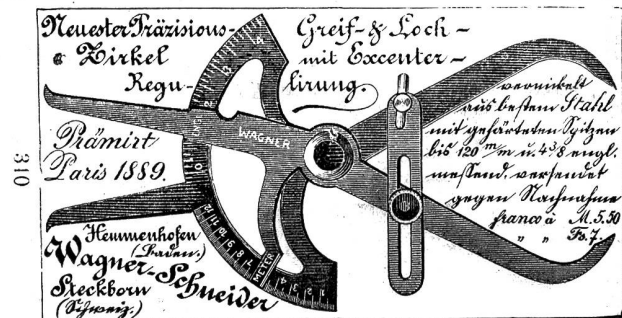 Neuester Präzisions-
Zirkel
Regu-
Greif- & Loch-
mit Excenter-
lirung.
Prämirt
Paris 1889.
WAGNER
METER
vernickelt
aus bestem Stahl
mit gehärteten Spitzen
bis 120 m/m u. 4 3/8 engl.
messend, versendet
gegen Nachnahme
franco à M. 5.50
" " Fs. 7.
Hemmenhofen
(Baden.)
Wagner-Schneider
Steckborn
(Schweiz.)
310